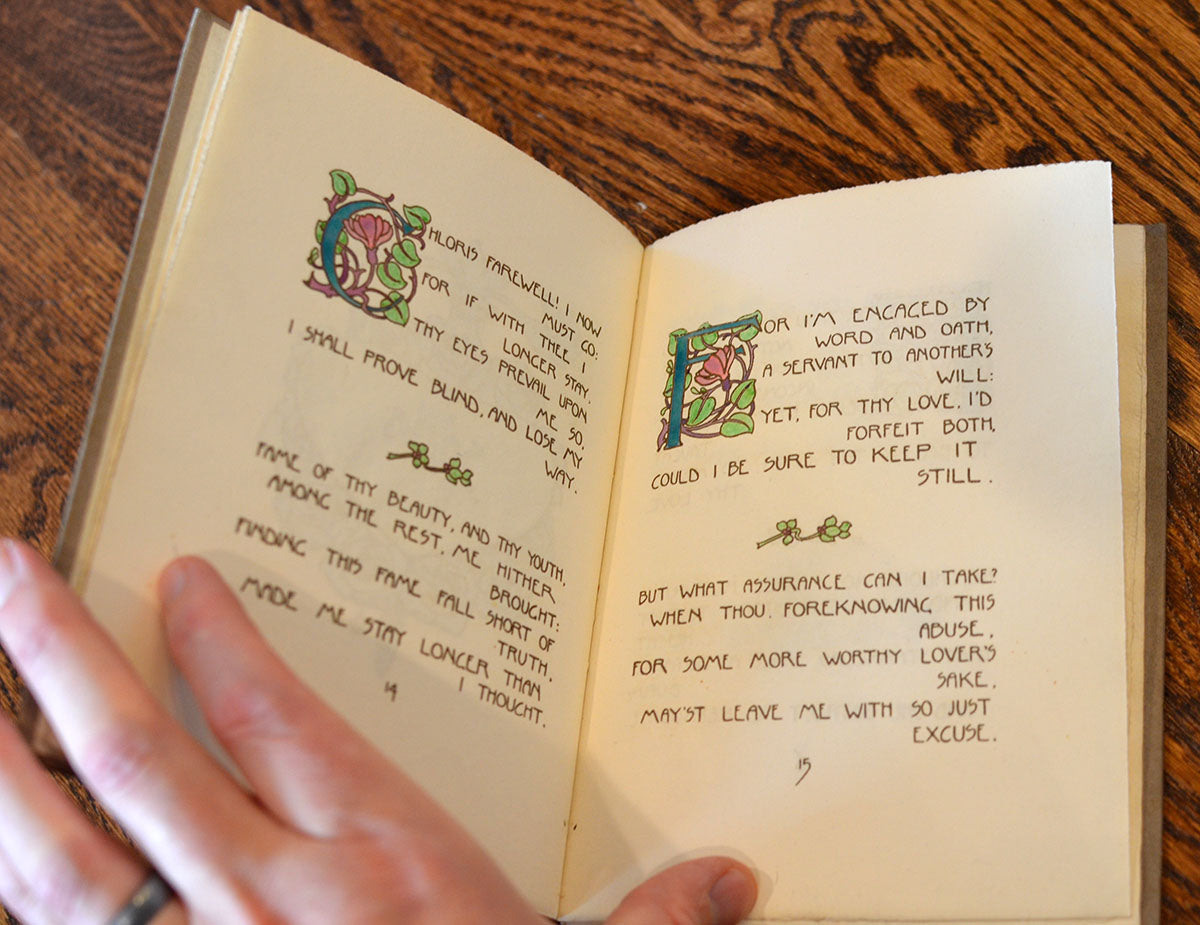 CHLORIS FAREWELL! I NOW
MUST GO:
FOR IF WITH THEE I
LONGER STAY,
THY EYES PREVAIL UPON
ME SO,
I SHALL PROVE BLIND, AND LOSE MY
WAY.
FAME OF THY BEAUTY, AND THY YOUTH,
AMONG THE REST, ME HITHER
BROUGHT:
FINDING THIS FAME FALL SHORT OF
TRUTH,
MADE ME STAY LONGER THAN
I THOUGHT.
14
FOR I'M ENGAGED BY
WORD AND OATH,
A SERVANT TO ANOTHER'S
WILL:
YET, FOR THY LOVE, I'D
FORFEIT BOTH,
COULD I BE SURE TO KEEP IT
STILL.
BUT WHAT ASSURANCE CAN I TAKE?
WHEN THOU, FOREKNOWING THIS
ABUSE,
FOR SOME MORE WORTHY LOVER'S
SAKE,
MAY'ST LEAVE ME WITH SO JUST
EXCUSE.
15